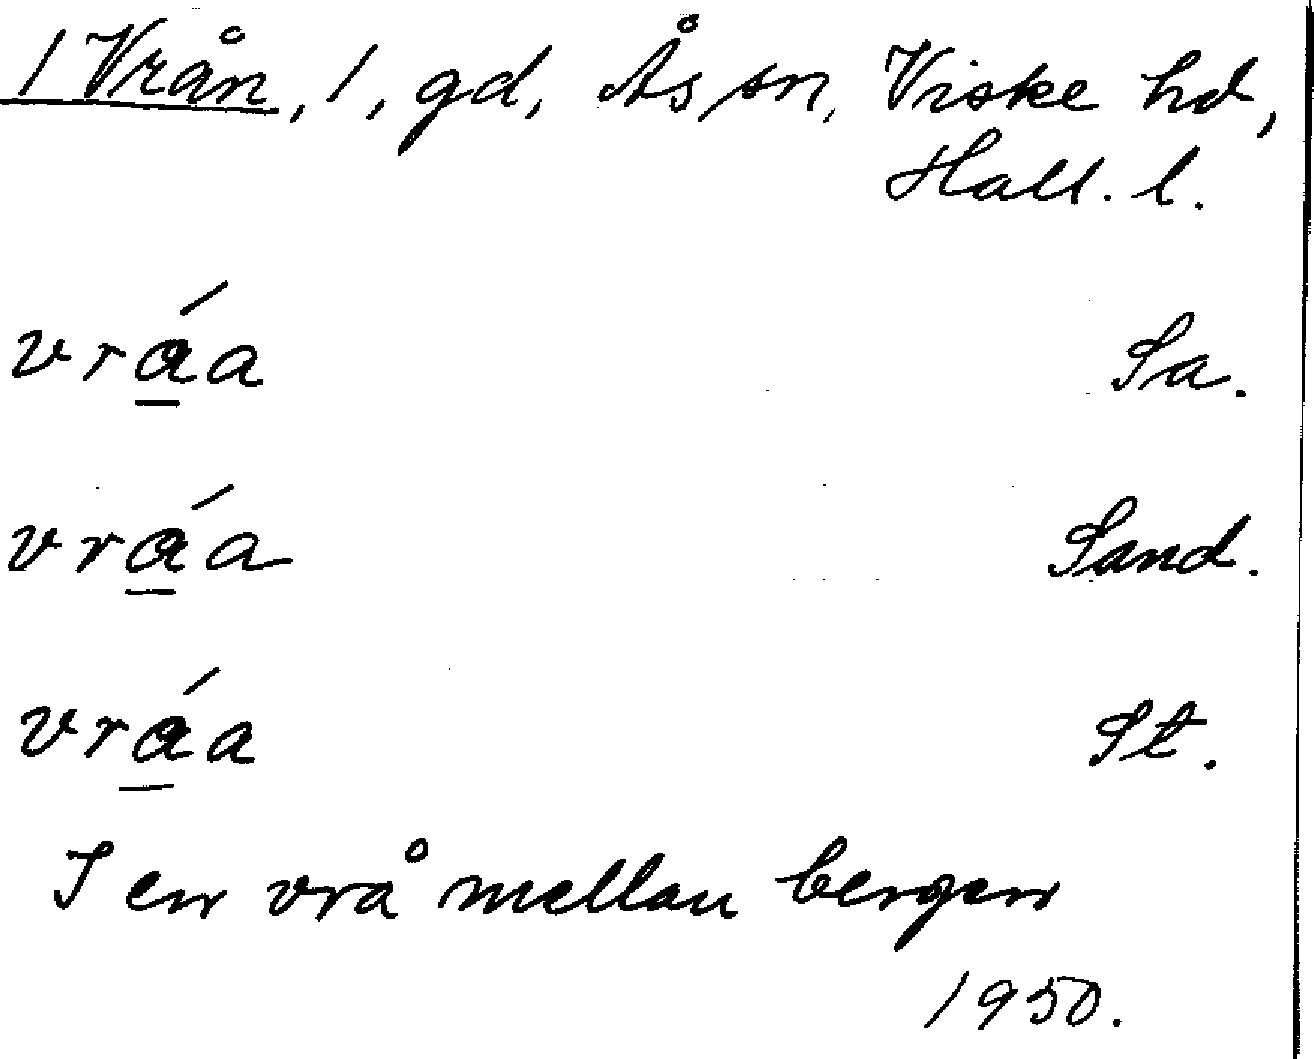 1 Vrån, 1, gd, Ås sn, Viske hd,
Hall. l.
vráa Sa.
vráa Sand.
vráa St.
I en vrå mellan bergen
1950.